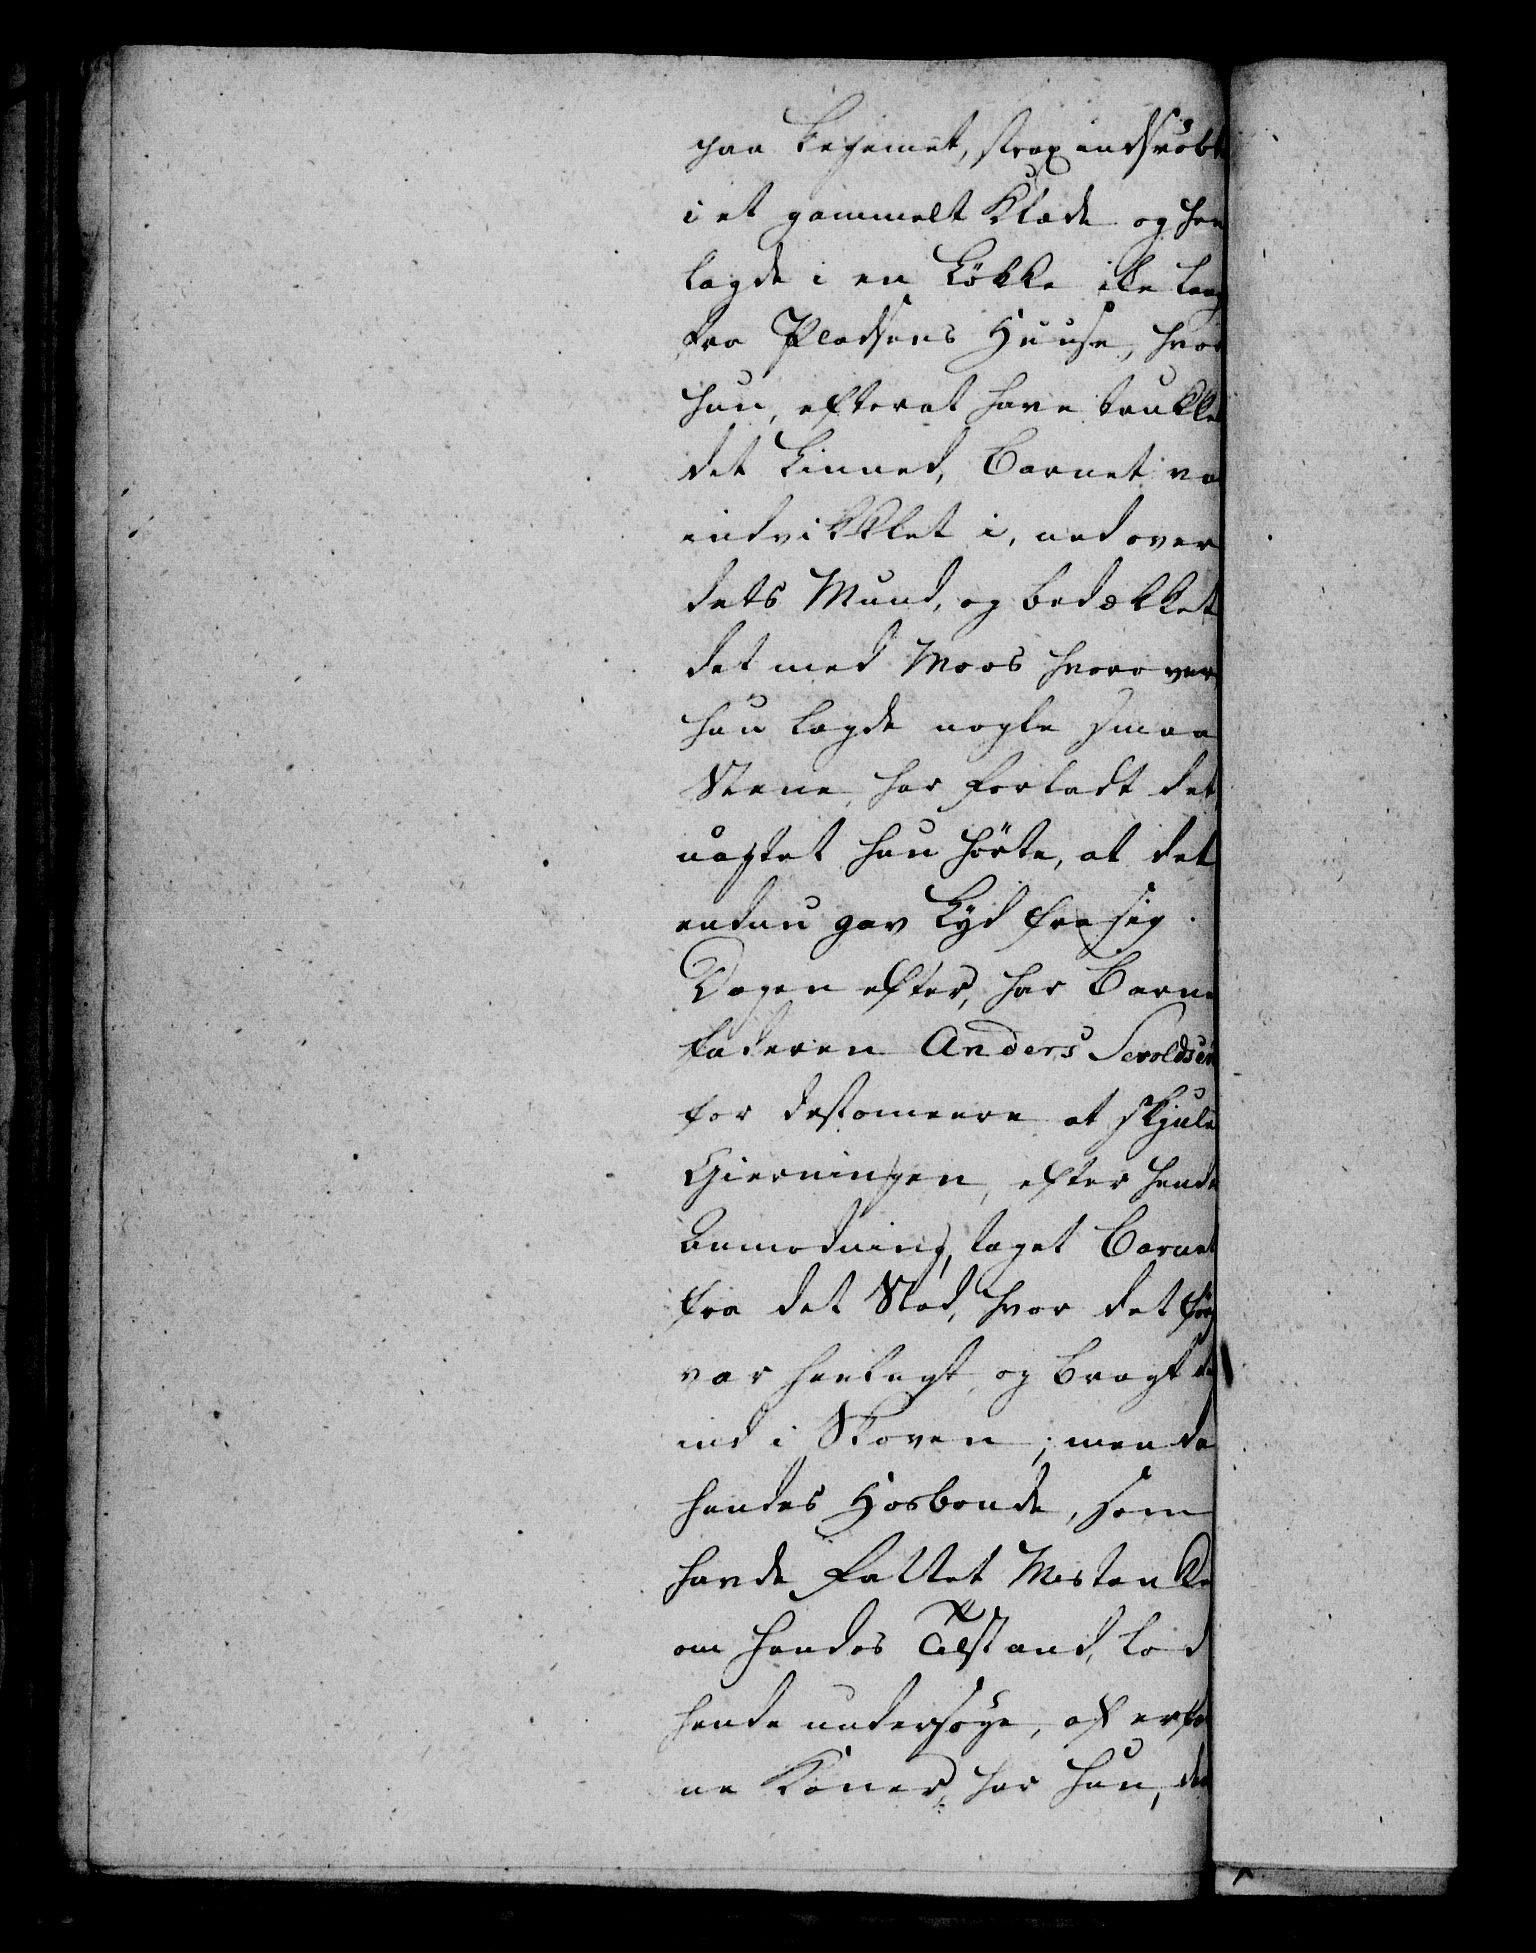 paa Legemet, strax indsvøbt
i et gammelt Klæde og hen
lagde i en Løkke ike lang
fra Pladsens Huuse, hvor
hun, efterat have trukket
det Linned, Barnet va
indvikklet i, ned over
dets Mund, og bedækket
det med Moos hvorover
hun lagde nogle smaa
Stene, har forladt det,
uagtet hun hørte, at det
endnu gav Lyd fra sig.
Dagen efter, har Barne
faderen Anders Sevoldsen
for desto meere at skjule
Gierningen, efter hende
Anmodning, taget Barnet
fra det Sted, hvor det før
var henlagt, og bragt de
ind i Skoven; men da
hendes Hosbonde, som
havde fattet Mistanke
om hendes Tilstand, lod
hende undersøge, af erfa
ne Koner, har hun, de